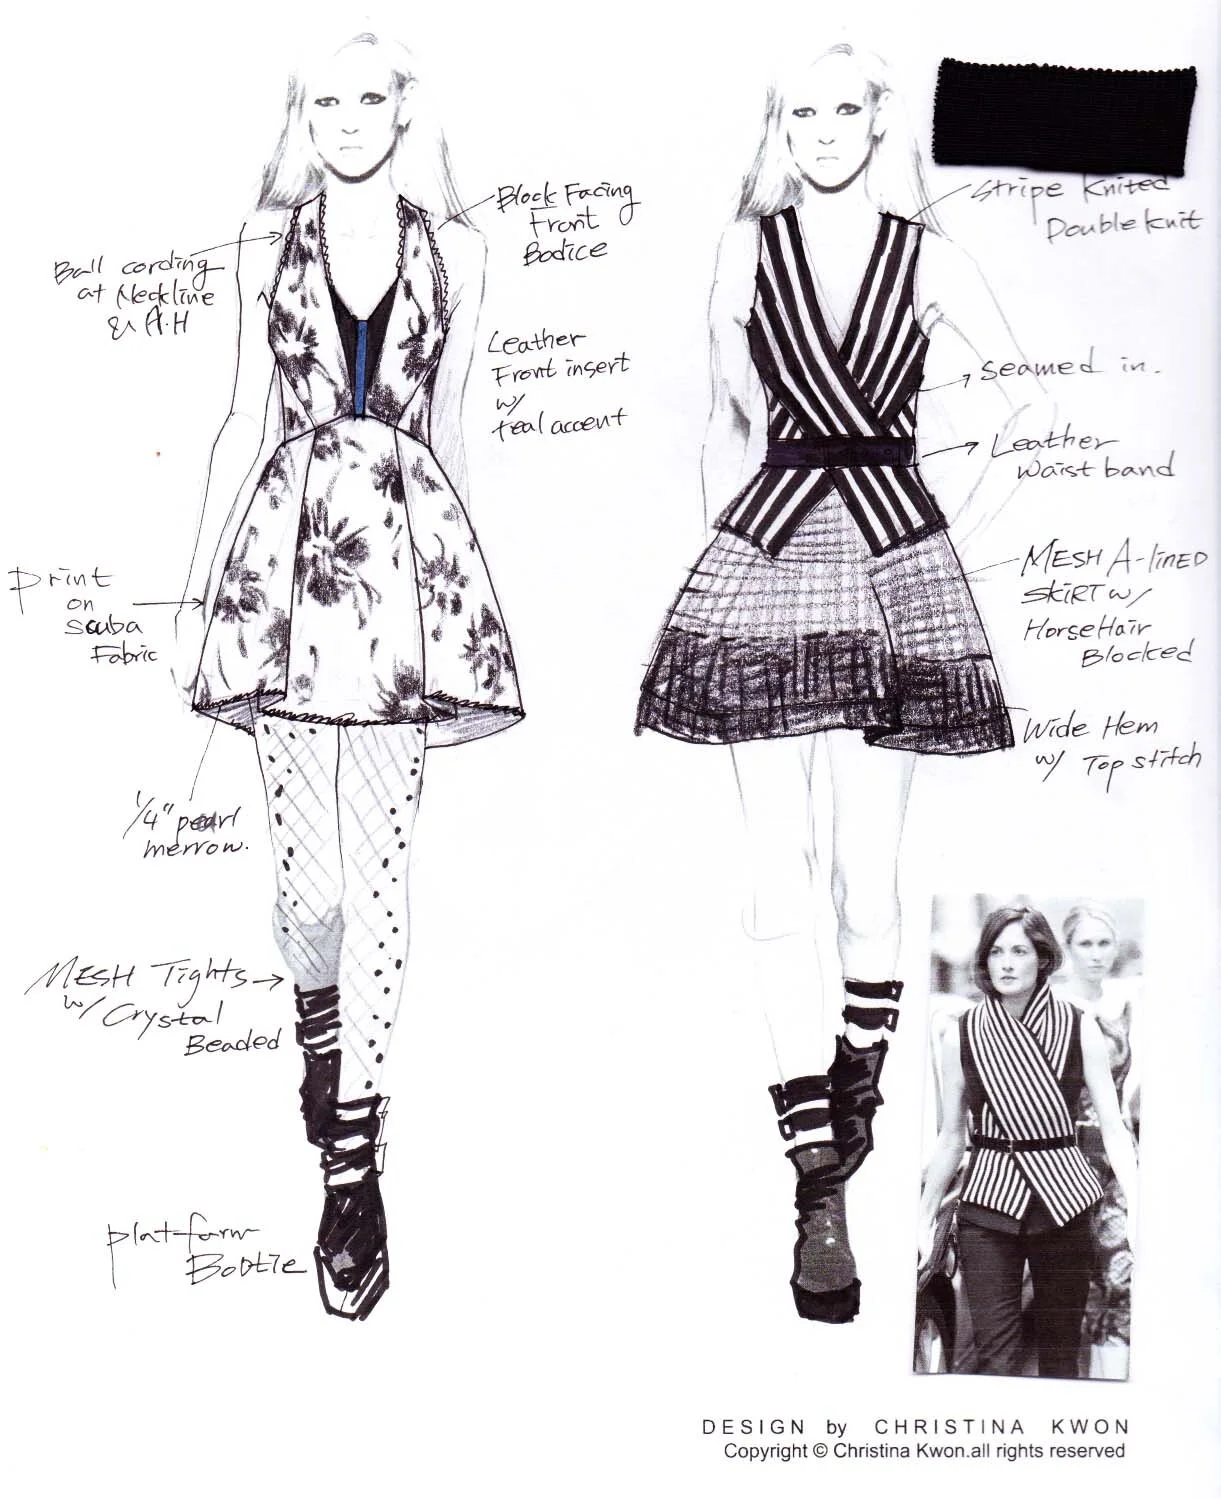 Ball cording
at Neckline
& A.H
Block Facing
Front
Bodice
Leather
Front insert
w/
teal accent
Print
on
scuba
Fabric
1/4" pearl
merrow.
MESH Tights
w/ Crystal
Beaded
platform
Bootie
Stripe Knited
Double knit
seamed in.
Leather
waist band
MESH A-lined
SKIRT w/
HorseHair
Blocked
Wide Hem
w/ Top stitch
DESIGN by CHRISTINA KWON
Copyright © Christina Kwon.all rights reserved